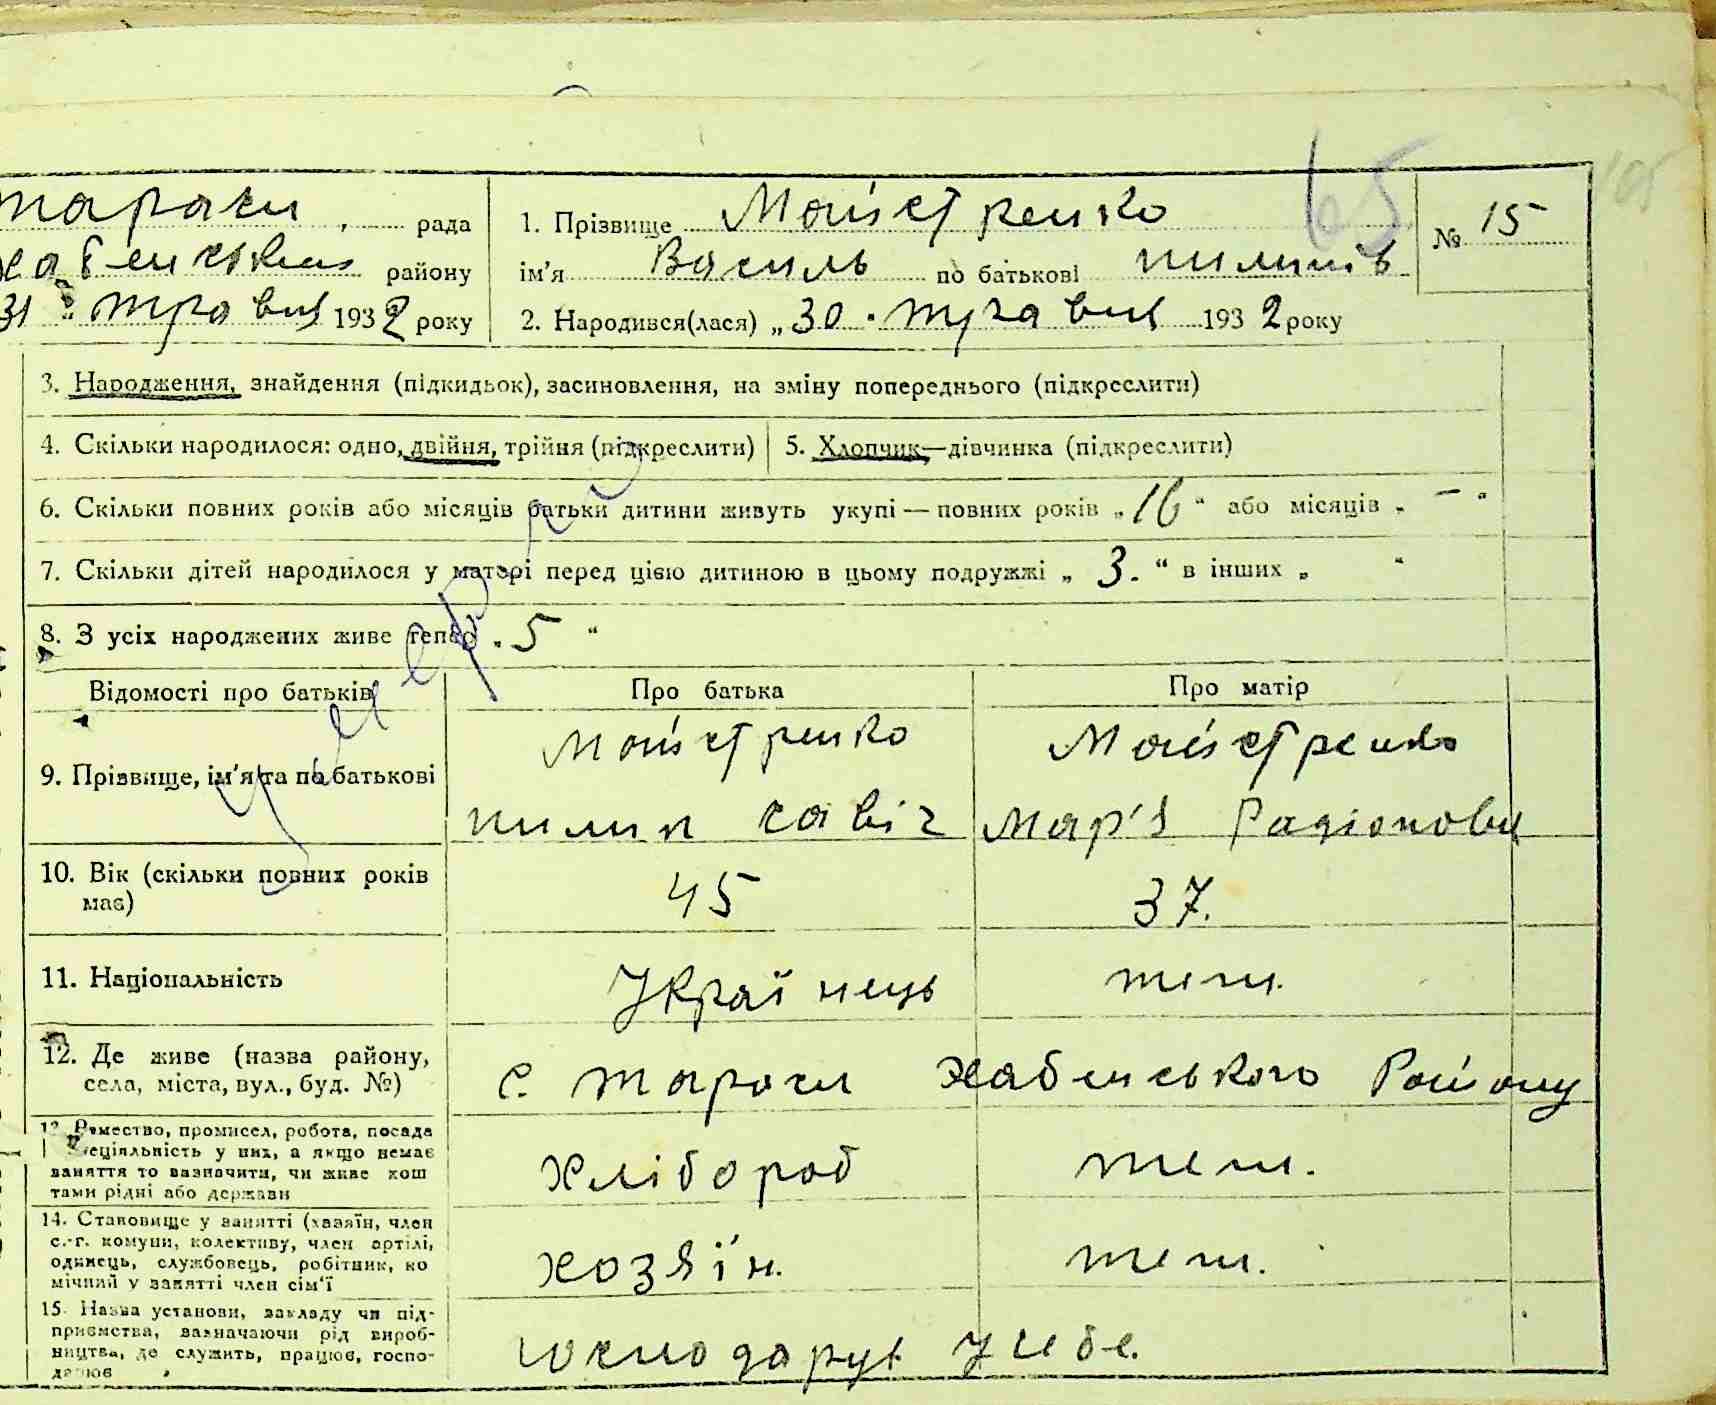 Тараси рада
Хабенський району
31 " травня 1932 року
1. Прізвище Майстренко
ім'я Василь по батькові пилипів
2. Народився(лася) „30 . травня 1932 року
№ 15
65
105
3. Народження, знайдення (підкидьок), засиновлення, на зміну попереднього (підкреслити)
4. Скільки народилося: одно, двійня, трійня (підкреслити)
5. Хлопчик,—дівчинка (підкреслити)
6. Скільки повних років або місяців батьки дитини живуть укупі — повних років „16" або місяців „ — "
7. Скільки дітей народилося у матері перед цією дитиною в цьому подружжі „ 3. " в інших „ "
8. З усіх народжених живе тепер „ 5 "
Відомості про батьків
Про батька
Про матір
9. Прізвище, ім'я та по батькові
Майстренко
пилип савіч
Майстренко
Мар'я Радіоновн
10. Вік (скільки повних років
має)
45
37.
11. Національність
Українець
теж.
12. Де живе (назва району,
села, міста, вул., буд. №)
с. Тараси Хабенського Району
13. Ремество, промисел, робота, посада
спеціяльність у них, а якщо немає
заняття то вазначити, чи живе кош
тами рідні або держави
хлібороб
теж.
14. Становище у занятті (хазяїн, член
с.-г. комуни, колективу, член артілі,
одинець, службовець, робітник, по
мічний у занятті член сім'ї
хозяїн.
теж.
15. Назва установи, закладу чи під-
приємства, зазначаючи рід вироб-
ництва, де служить, працює, госпо-
дарює
господарує у себе.